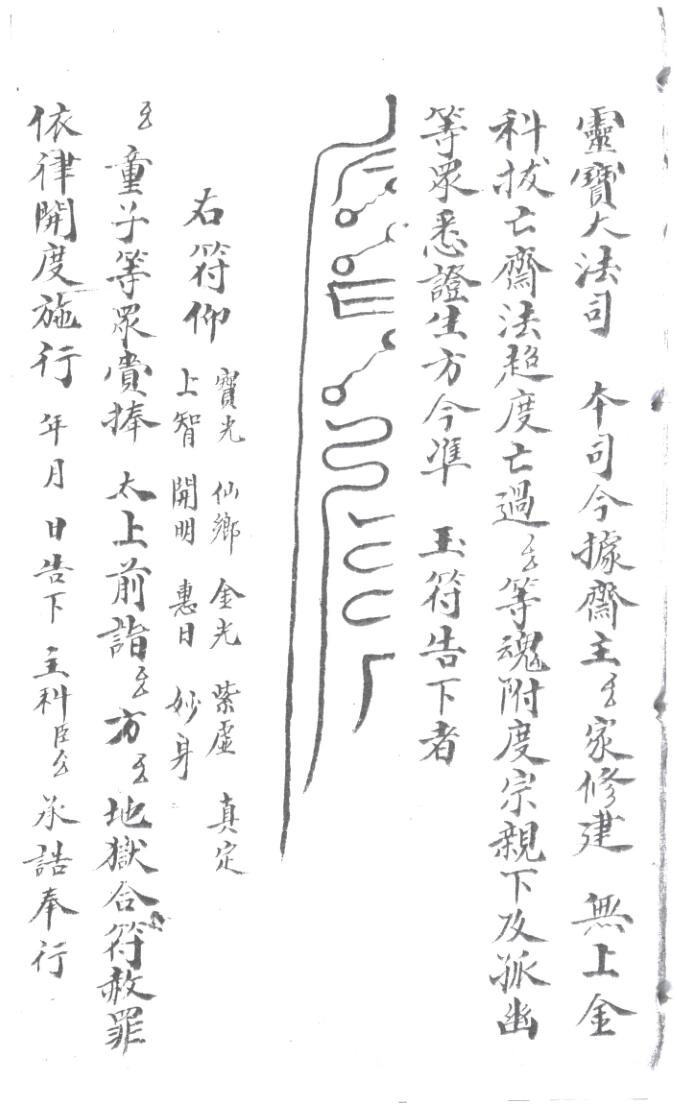 靈寶大法司　本司今據齋主厶家修建　無上金
科拔亡齋法超度亡過厶等魂附度宗親下及孤幽
等眾悉證生方今準　玉符告下者
右符仰
寶光　仙鄉　金光　紫虛　真定
上智　開明　惠日　妙身
厶童子等眾賫捧　太上前詣厶方厶地獄合符赦罪
依律開度施行　年月　日告下　主科臣厶　承誥奉行